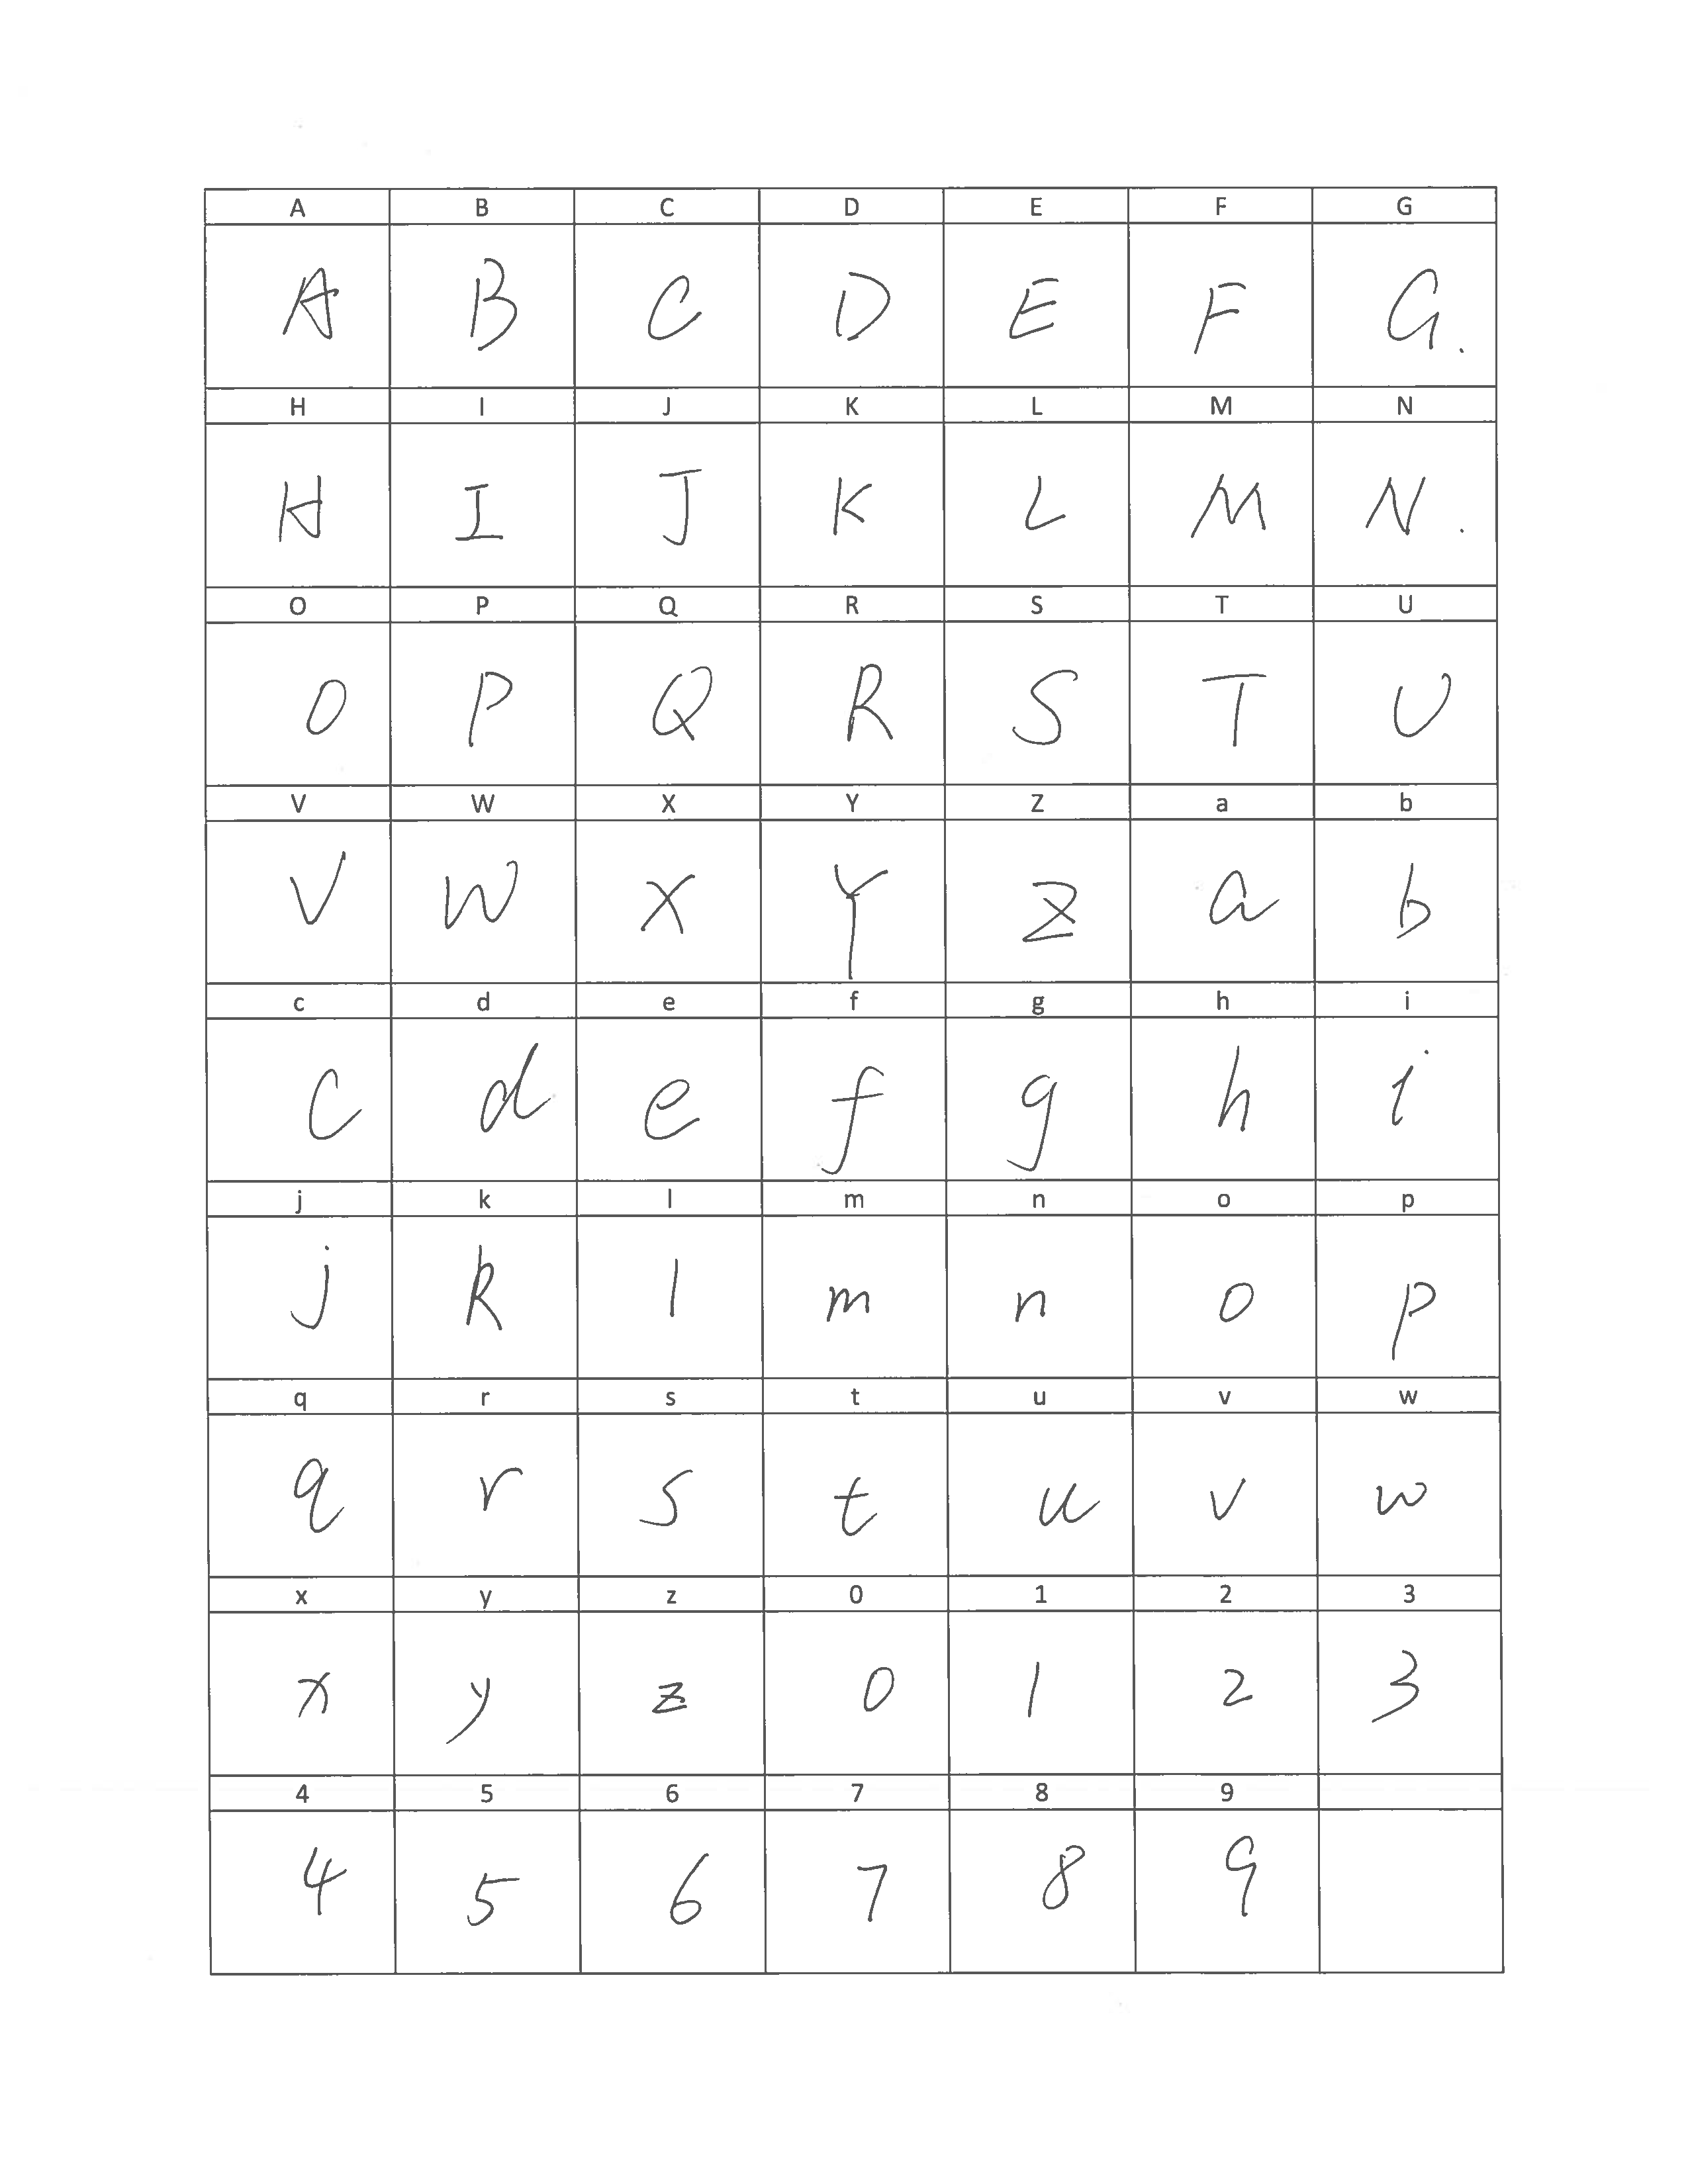 A B C D E F G
A B C D E F G.
H I J K L M N
H I J K L M N.
O P Q R S T U
O P Q R S T U
V W X Y Z a b
V W X Y Z a b
c d e f g h i
c d e f g h i
j k l m n o p
j k l m n o p
q r s t u v w
q r s t u v w
x y z 0 1 2 3
x y z 0 1 2 3
4 5 6 7 8 9
4 5 6 7 8 9